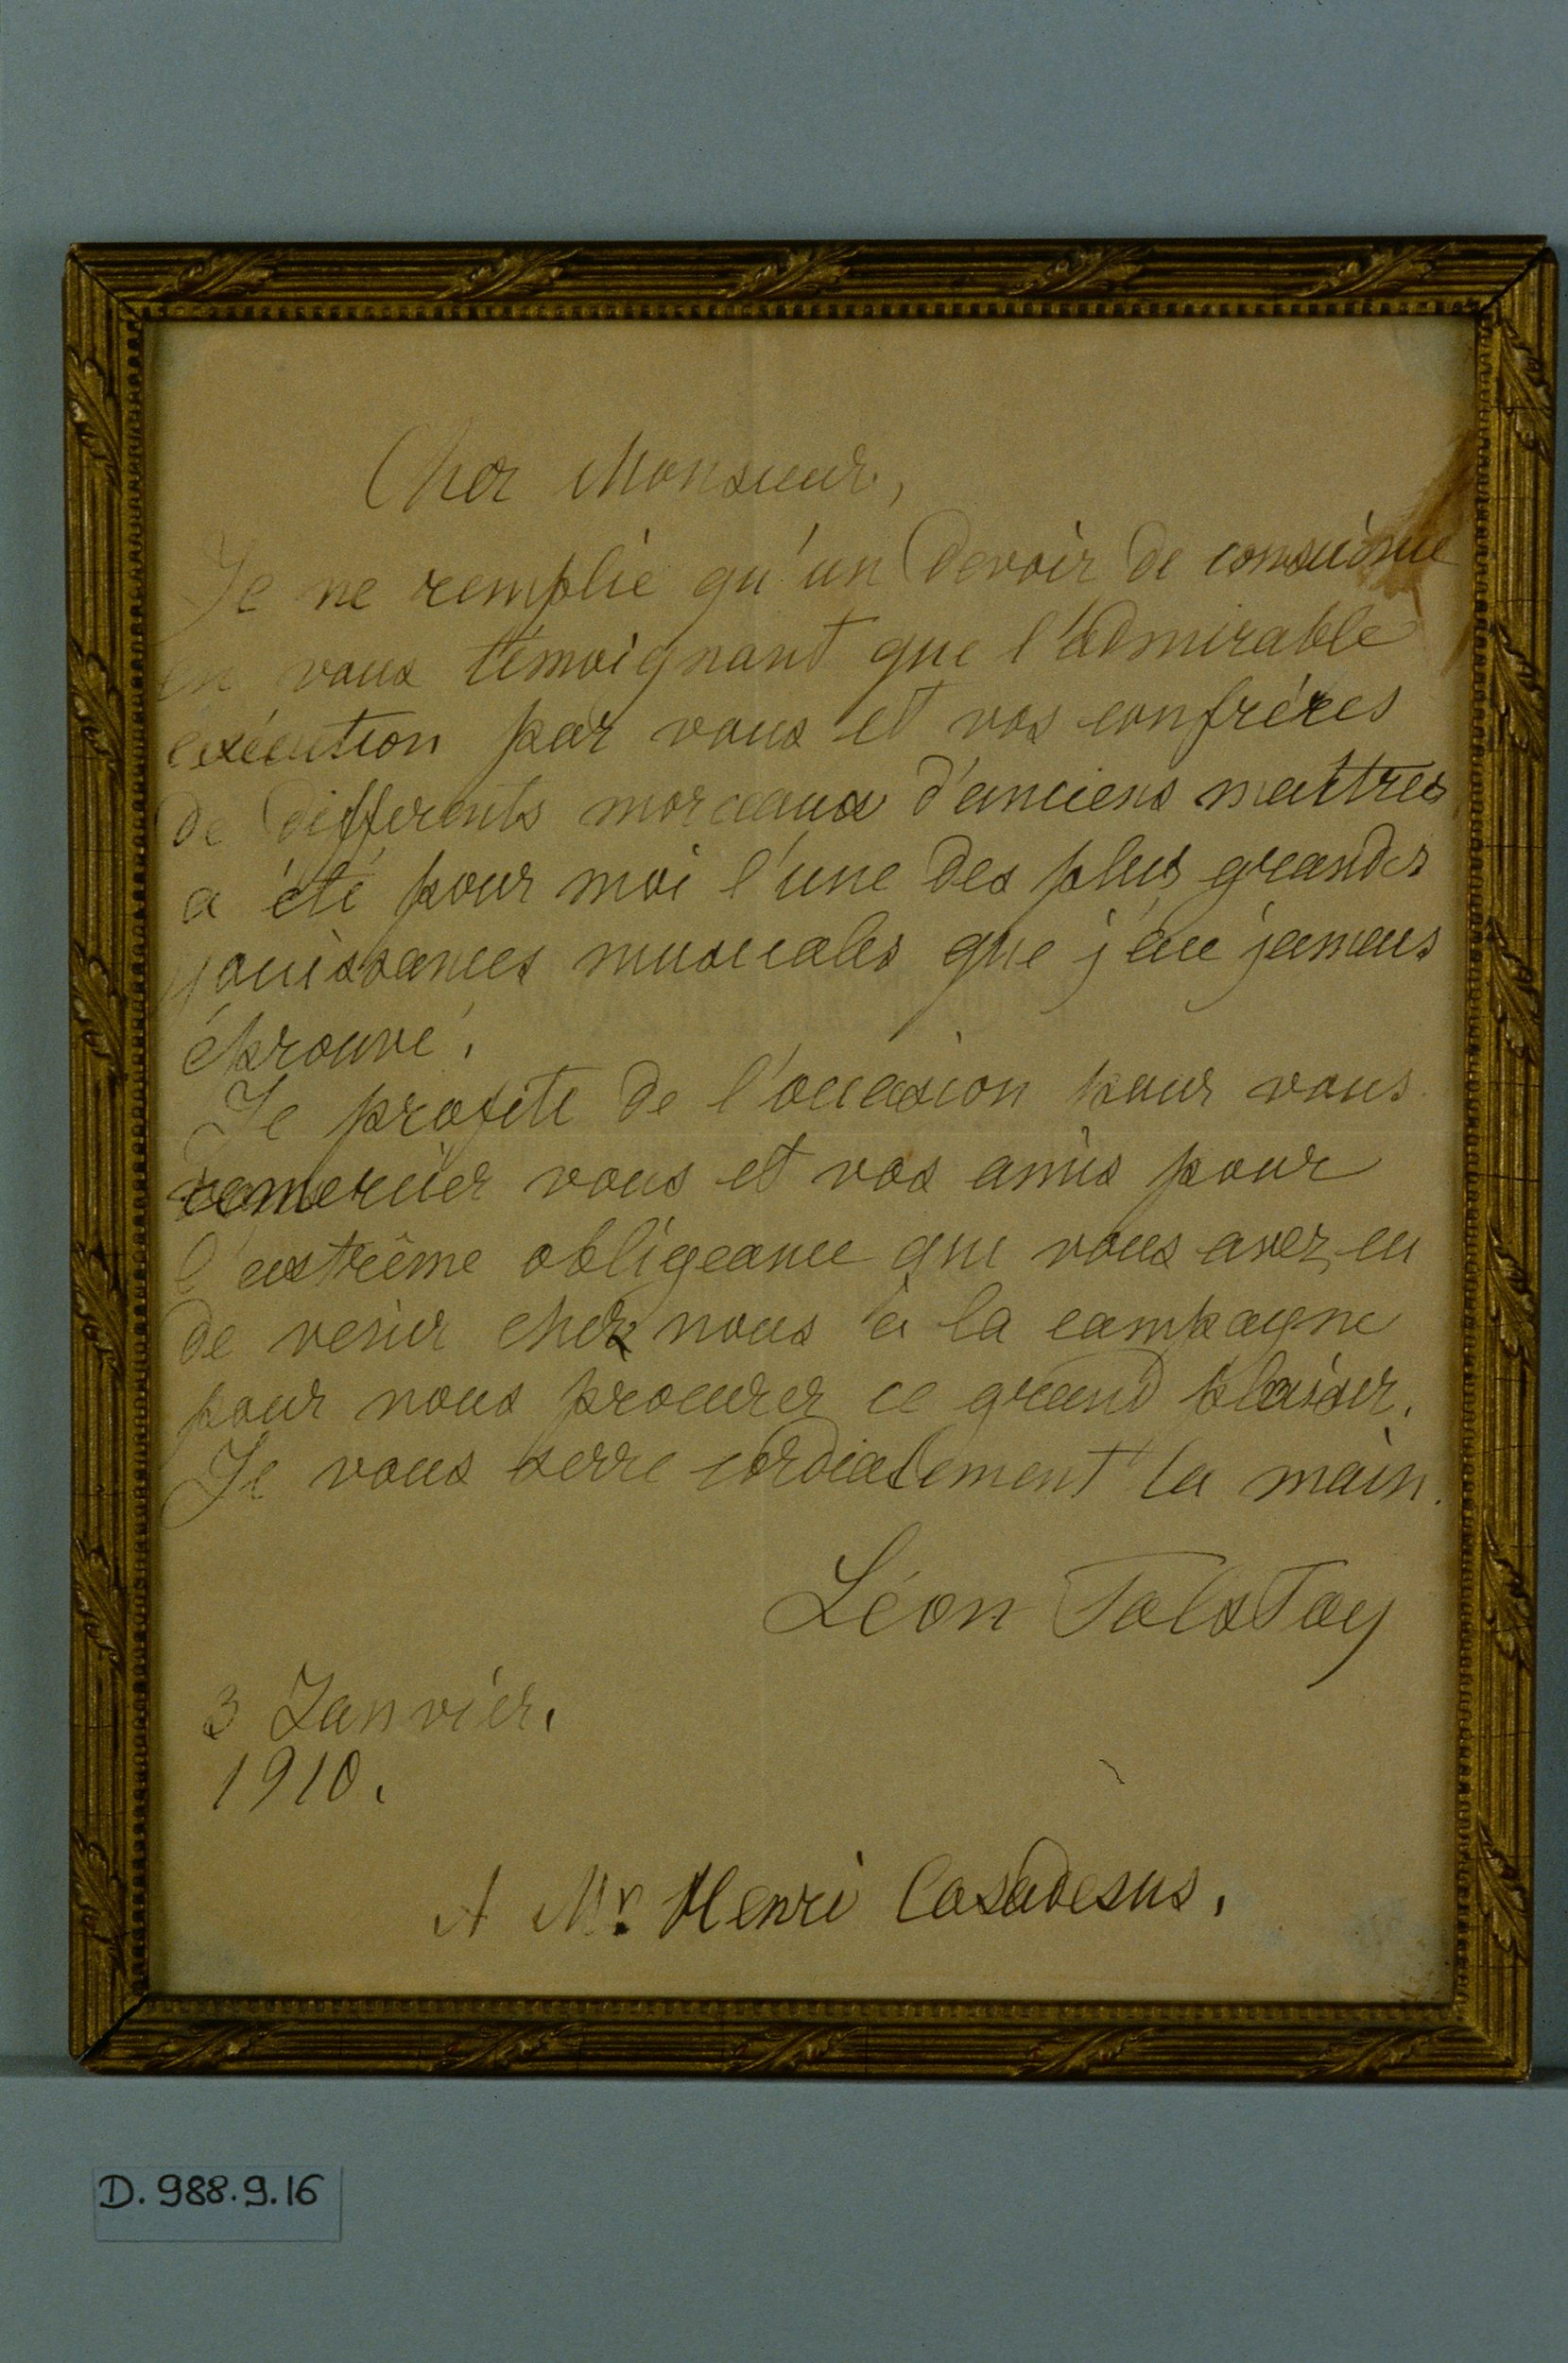 Cher Monsieur,
Je ne remplie qu'un devoir de conscience
en vous témoignant que l'admirable
exécution par vous et vos confréres
de differents morceaux d'anciens maitres
a été pour moi l'une des plus grandes
jouissances musicales que j'aie jamais
éprouvé.
Je profite de l'occasion pour vous
remercier vous et vos amis pour
l'extrème obligeance que vous avez eu
de venir chez nous à la campagne
pour nous procurer ce grand plaisir.
Je vous serre cordialement la main.
Léon Tolstoy
3 Janvier.
1910.
A Mr. Henri Casadesus.
D.988.9.16